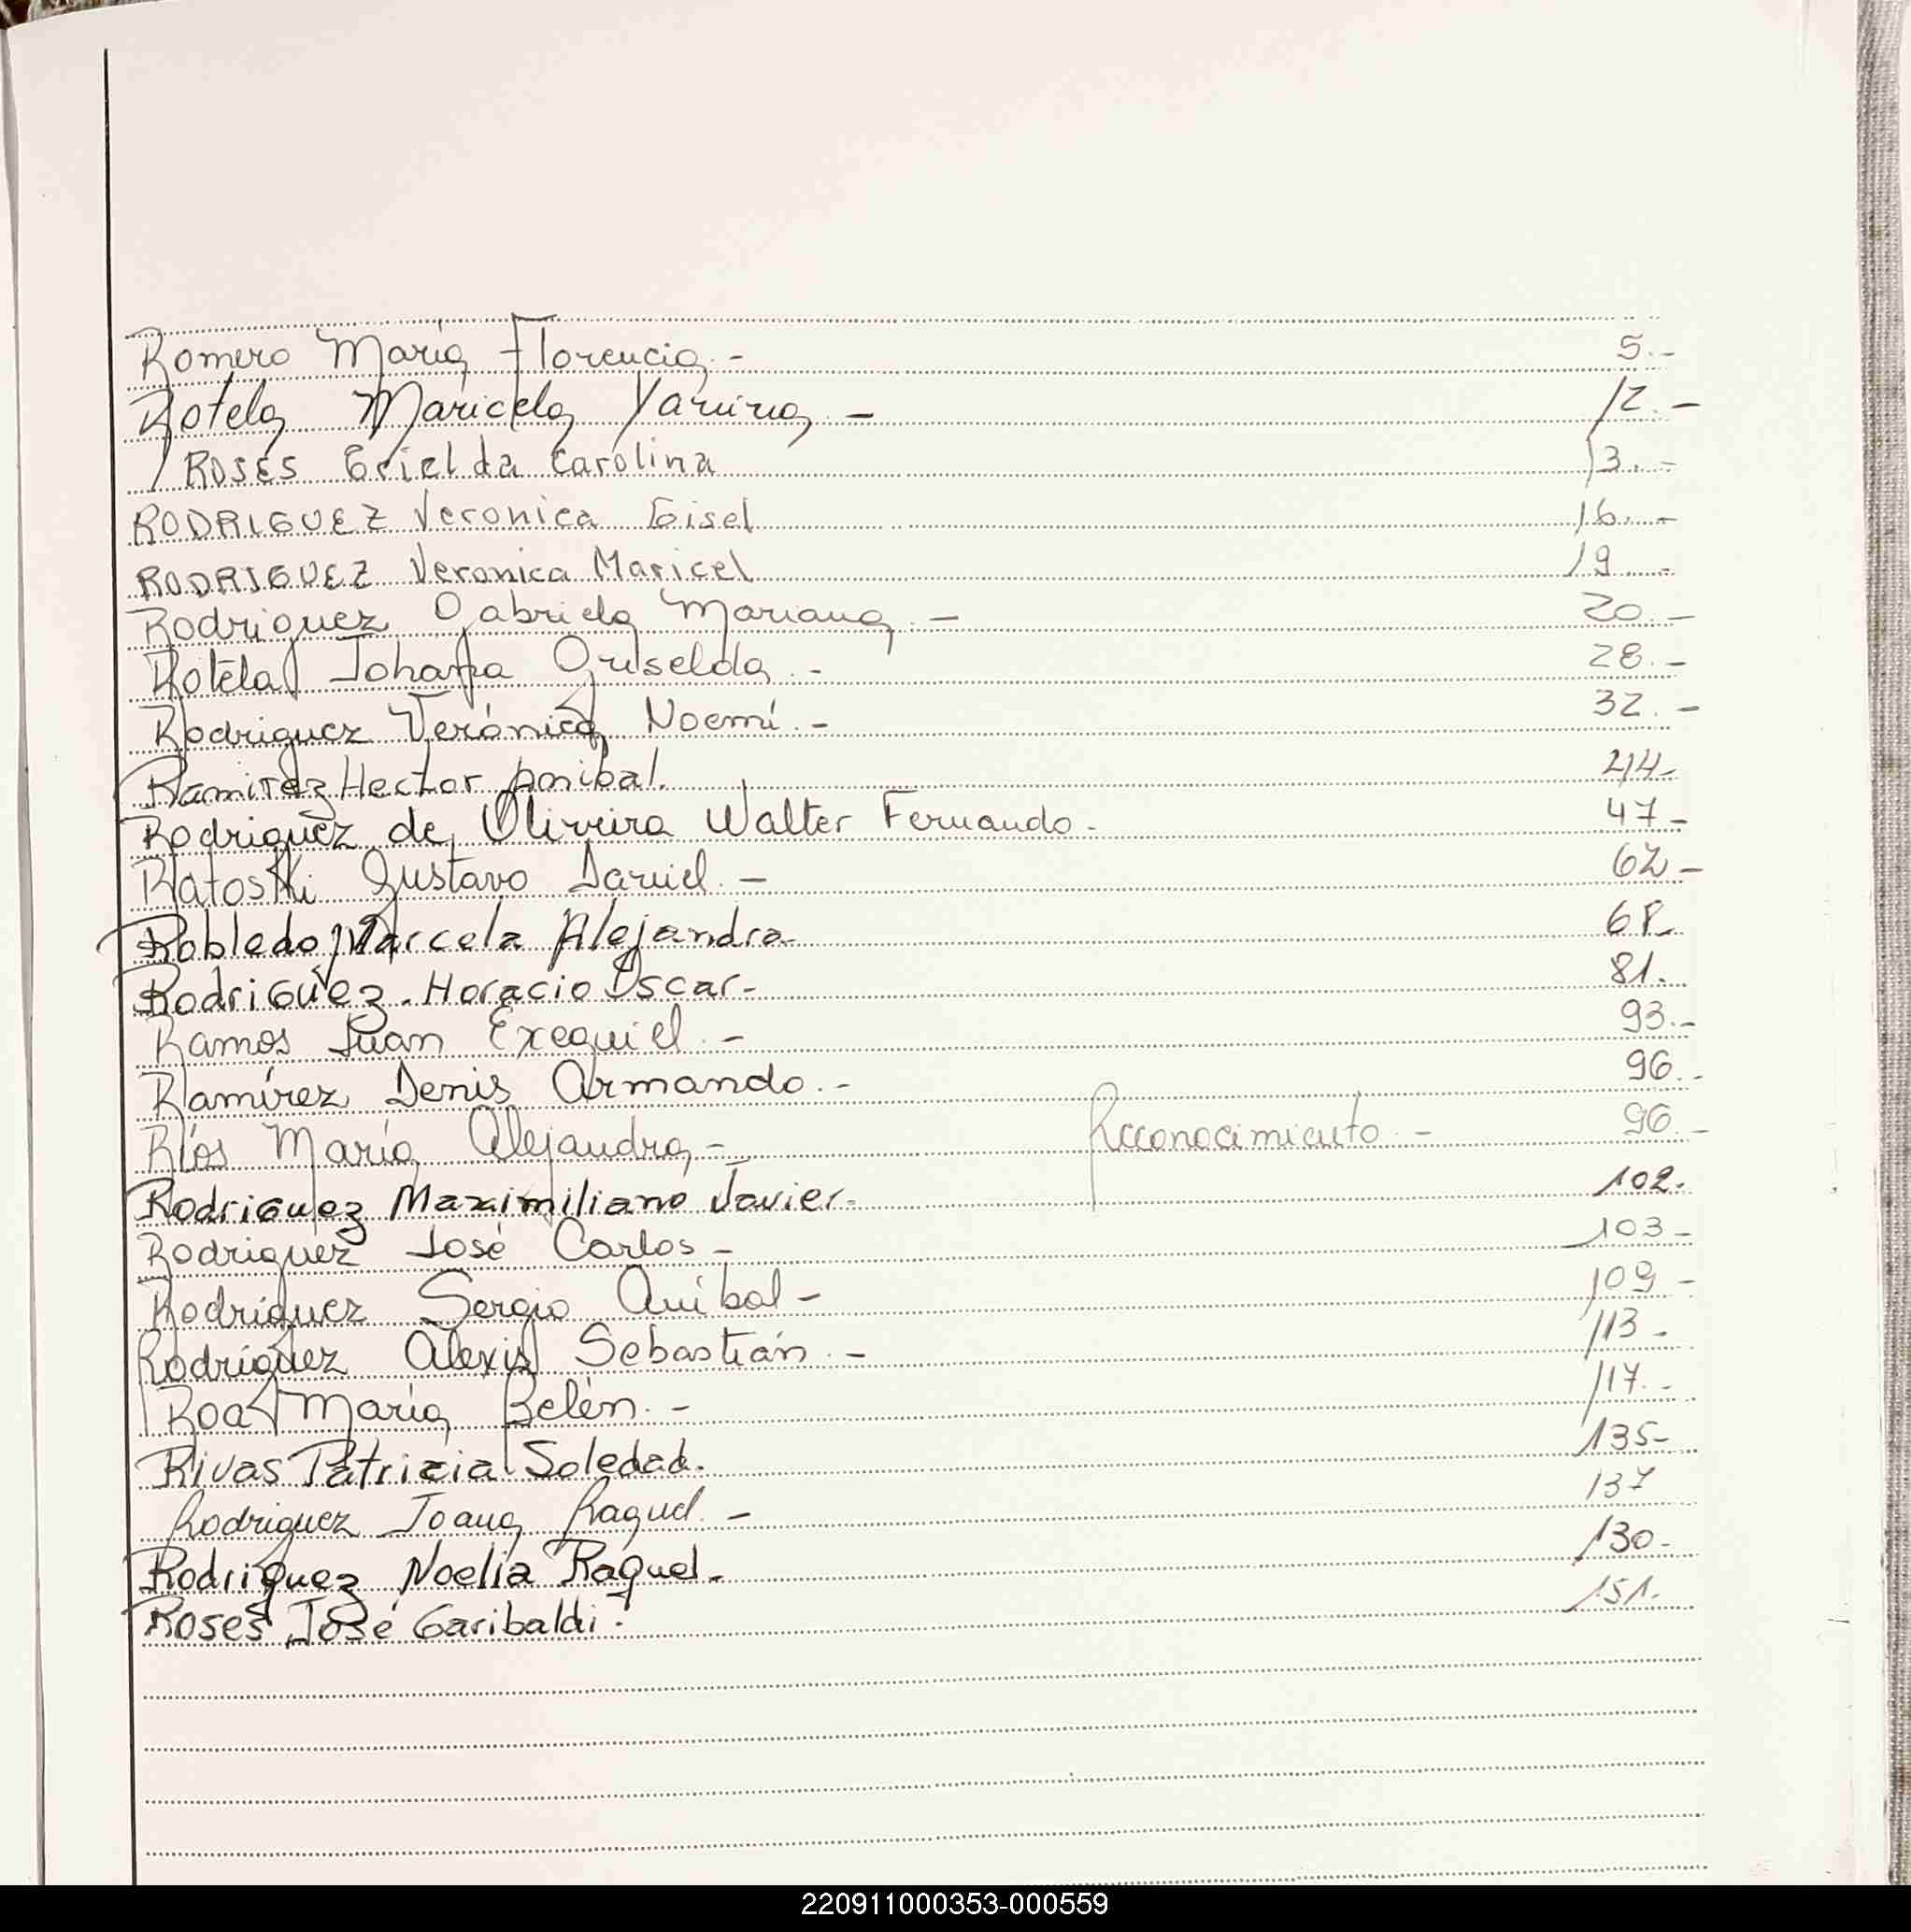 Romero María Florencia.- 5.-
Rotela Maricela Yanina.- 12.-
Roses Grielda Carolina 13.-
RODRIGUEZ Veronica Gisel 16.-
RODRIGUEZ Veronica Maricel 19.-
Rodriguez Gabriela Mariana.- 20.-
Rotela Johana Griselda.- 28.-
Rodriguez Verónica Noemí.- 32.-
Ramirez Hector Anibal. 44-
Rodriguez de Oliveira Walter Fernando- 47-
Ratoski Gustavo Daniel.- 62-
Robledo Marcela Alejandra- 68-
Rodriguez. Horacio Oscar- 81.
Ramos Juan Exequiel.- 93.-
Ramírez Denis Armando.- 96.-
Ríos María Alejandra,- Reconocimiento.- 96.-
Rodriguez Maximiliano Javier- 102.
Rodriguez José Carlos- 103-
Rodríguez Sergio Anibal- 109-
Rodríguez Alexis Sebastián.- 113.-
Roa María Belén.- 117.-
Rivas Patricia Soledad. 135-
Rodriguez Joana Raquel.- 137
Rodriguez Noelia Raquel- 130-
Roses José Garibaldi. 151.
220911000353-000559